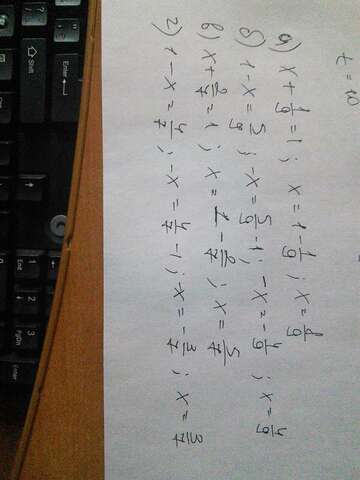 t = 10
а) x + 1/9 = 1 ; x = 1 - 1/9 ; x = 8/9
б) 1 - x = 5/9 ; -x = 5/9 - 1 ; -x = -4/9 ; x = 4/9
в) x + 2/7 = 1 ; x = 1 - 2/7 ; x = 5/7
г) 1 - x = 4/7 ; -x = 4/7 - 1 ; -x = -3/7 ; x = 3/7
Shift
Enter
1
End
2
3
PgDn
Enter